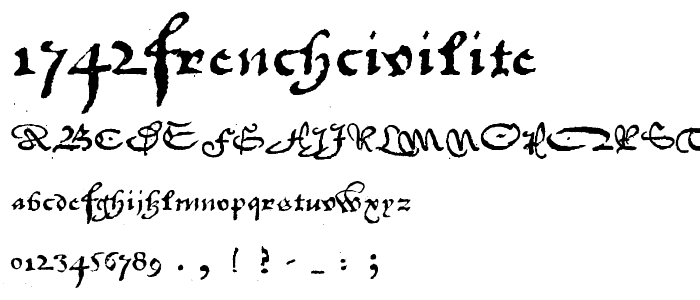 1742frenchcivilite
ABCDEFGHIJKLMNOPQRST
abcdefghijklmnopqrstuvwxyz
0123456789 . , ! ? - _ : ;